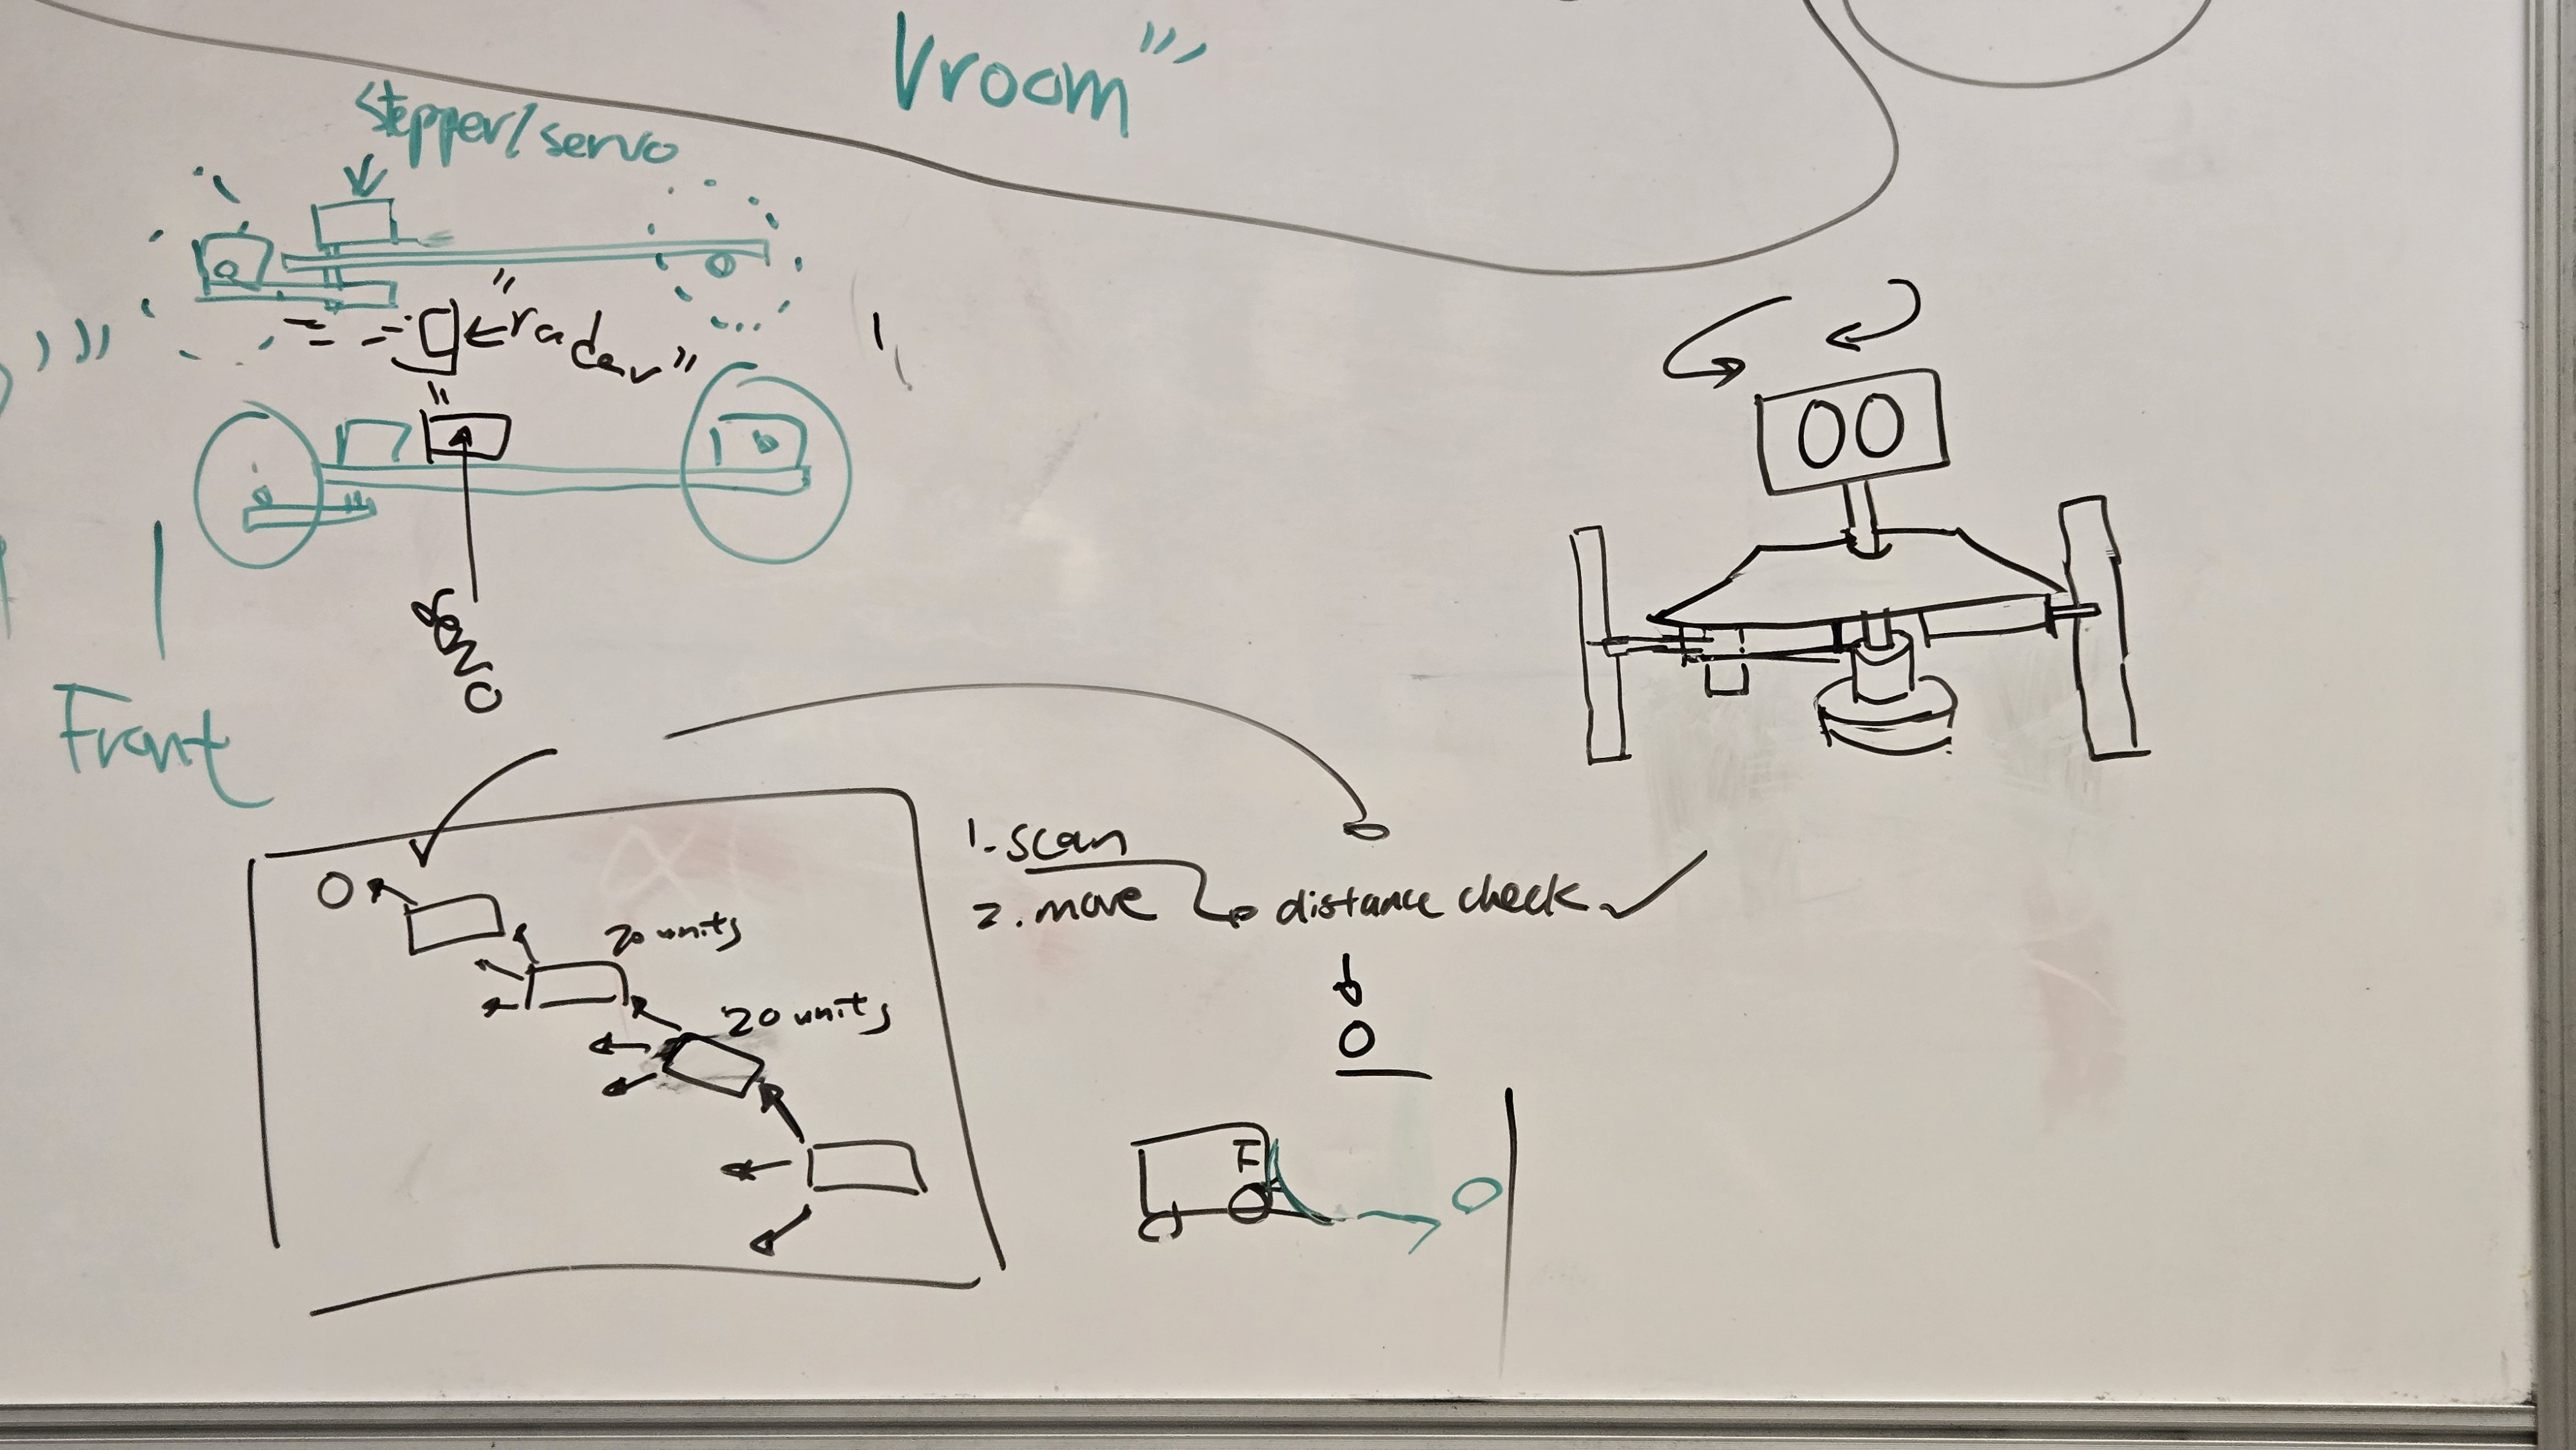 Vroom
stepper/servo
"radar"
servo
Front
1. scan
2. move
distance check ✓
20 units
20 units
F